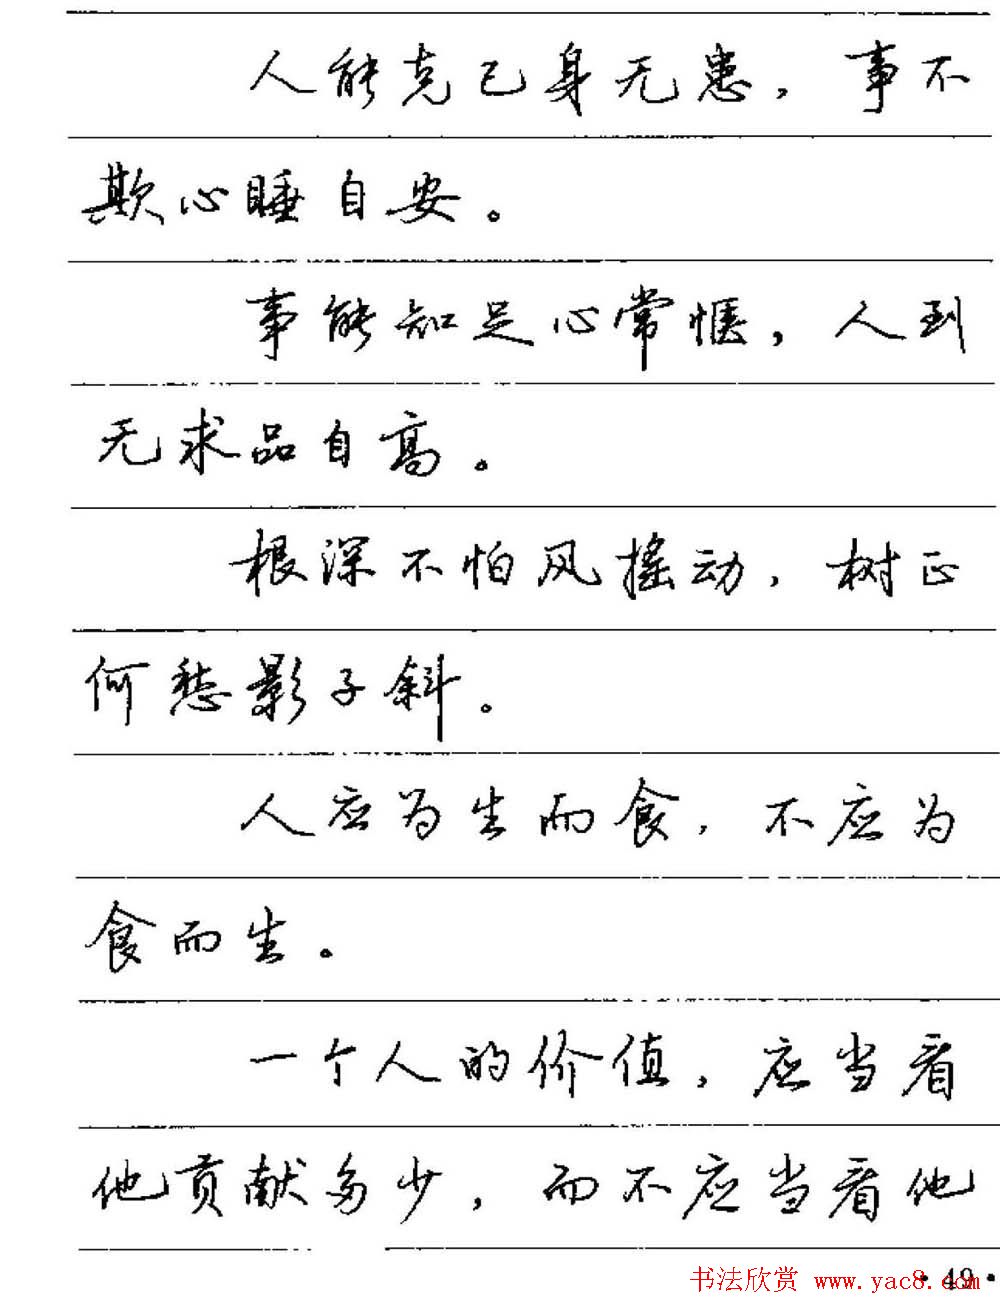 人能克己身无患，事不
欺心睡自安。
事能知足心常惬，人到
无求品自高。
根深不怕风摇动，树正
何愁影子斜。
人应为生而食，不应为
食而生。
一个人的价值，应当看
他贡献多少，而不应当看他
·49·
书法欣赏 www.yac8.com